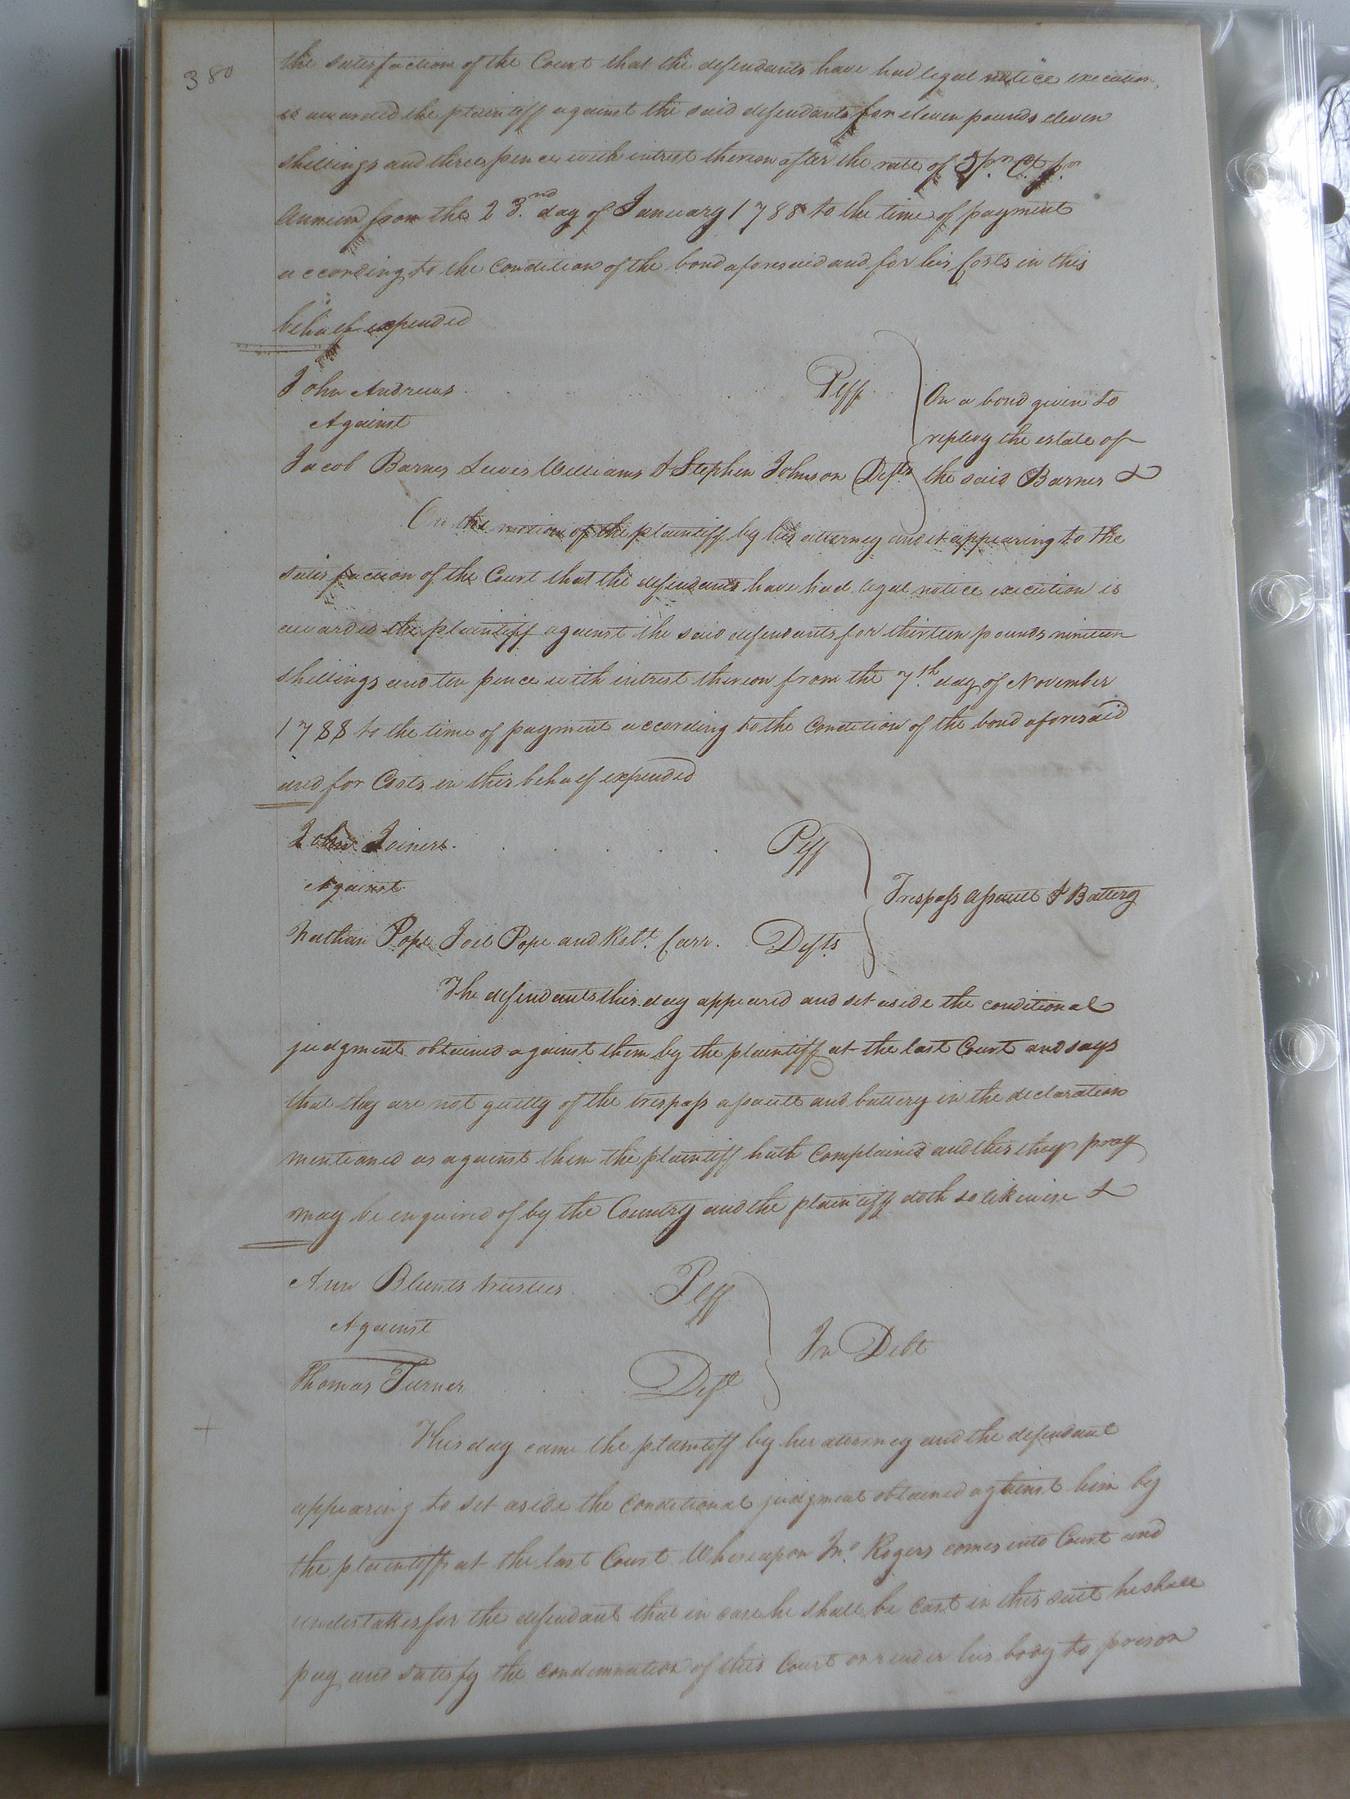 380
the satisfaction of the Court that the defendants have had legal notice execution
is awarded the plaintiff against the said defendants for eleven pounds eleven
shillings and three pence with intrest thereon after the rate of 5 pr. Ct. pr
Annum from the 23.nd day of January 1788 to the time of payment
according to the Condition of the bond aforesaid and for his Costs in this
behalf expended
John Andrews Plff
On a bond given to
Against
replevy the estate of
Jacob Barnes Lewis Williams & Stephen Johnson Defts the said Barnes &
On the motion of the plaintiff by his attorney and it appearing to the
satisfaction of the Court that the defendants have had legal notice execution is
awarded the plaintiff against the said defendants for thirteen pounds nineteen
shillings and ten pence with intrest thereon from the 7.th day of November
1788 to the time of payment according to the Condition of the bond aforesaid
and for Costs in this behalf expended
John Joiner Plff
Against
Trespass assault & Battery
Nathan Pope Joel Pope and Robt. Carr. Defts
The defendants this day appeared and set aside the conditional
judgment obtained against them by the plaintiff at the last Court and says
that they are not guilty of the trespass assault and battery in the declaration
mentioned as against them the plaintiff hath Complained and this they pray
may be enquired of by the Country and the plaintiff doth so likewise &
Ann Blunts trustees Plff
Against
In Debt
Thomas Turner Deft
This day came the plaintiff by her attorney and the defendant
appearing to set aside the Conditional judgment obtained against him by
the plaintiff at the last Court Whereupon Jno. Rogers comes into Court and
undertakes for the defendant that in case he shall be Cast in this suit he shall
pay and satisfy the condemnation of this Court or render his body to prison